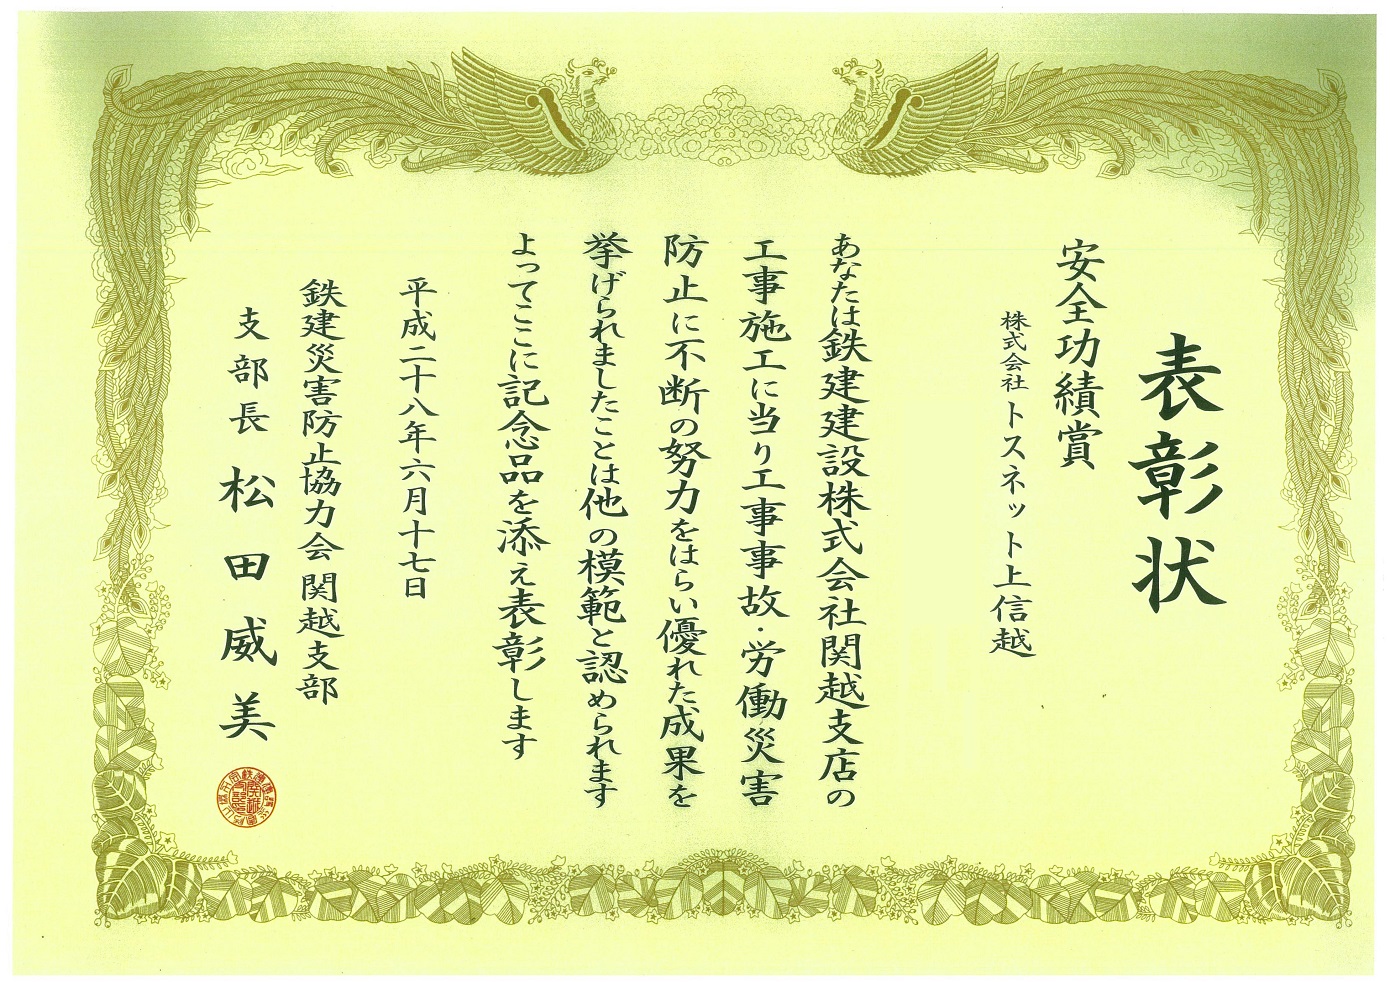 表彰状
安全功績賞
株式会社 トスネット上信越
あなたは鉄建建設株式会社関越支店の
工事施工に当り工事事故・労働災害
防止に不断の努力をはらい優れた成果を
挙げられましたことは他の模範と認められます
よってここに記念品を添え表彰します
平成二十八年六月十七日
鉄建災害防止協力会関越支部
支部長 松田威美